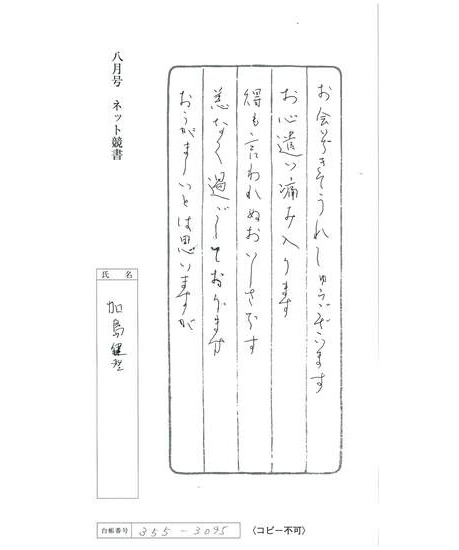 お会いできてうれしゅうございます
お心遣い痛み入ります
得も言われぬおいしさです
恙なく過ごしております
おこがましいとは思いますが
八月号 ネット競書
氏名
加島
台帳番号 355-3095
〈コピー不可〉